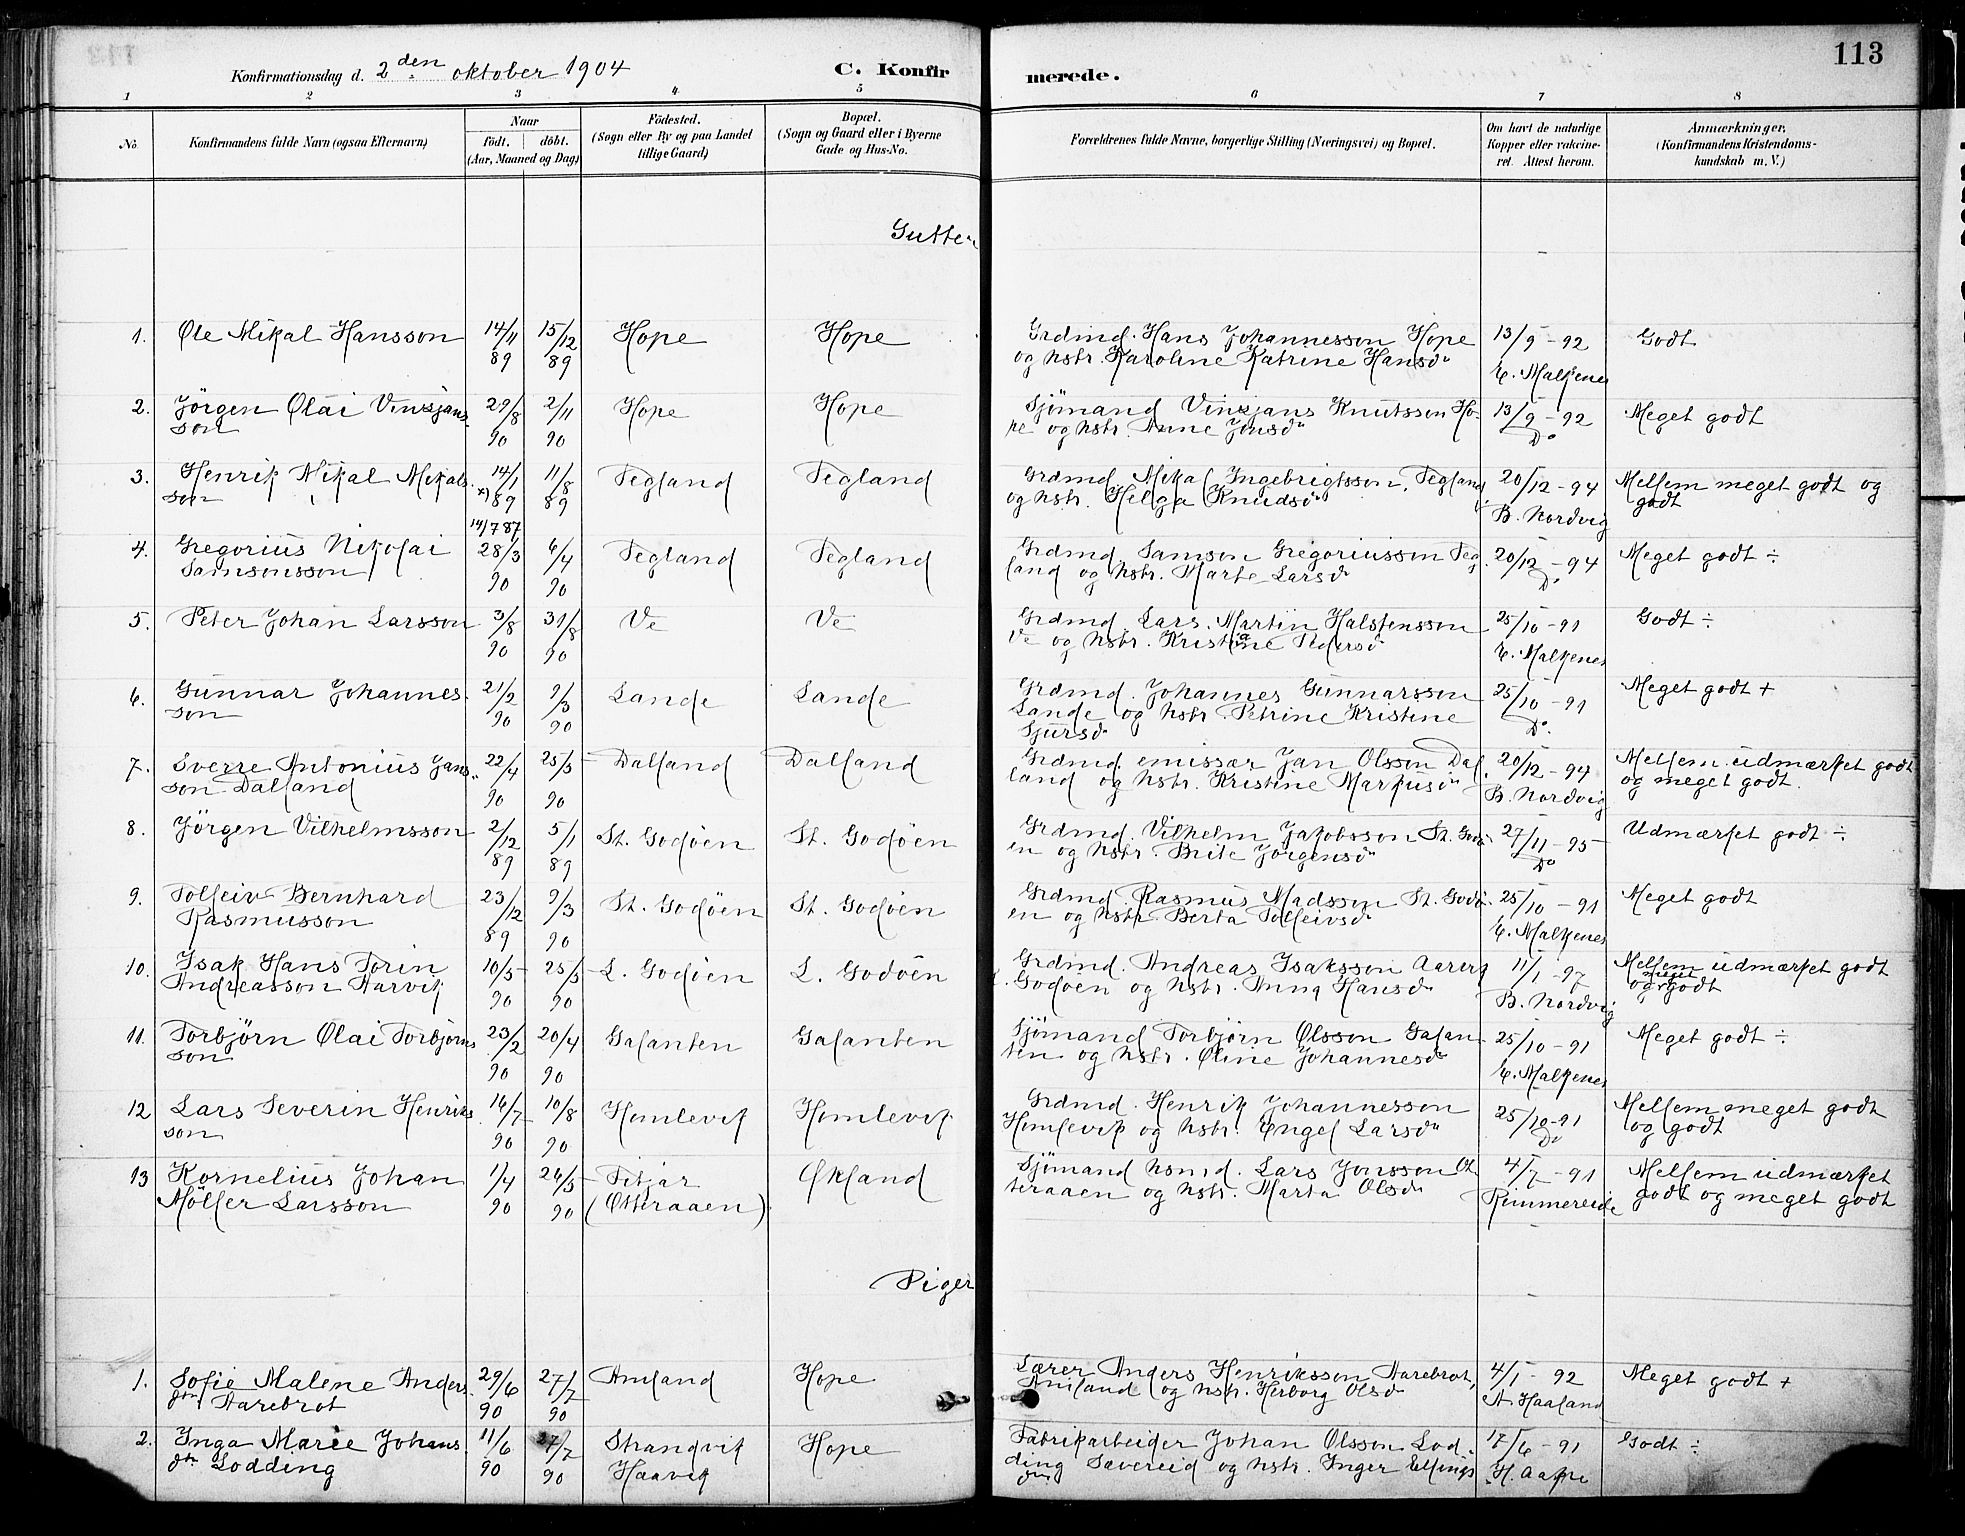 113
Konfirmationsdag d. 2den oktober 1904 C. Konfirmerede.
1 2 3 4 5 6 7 8
No. Konfirmandens fulde Navn (ogsaa Efternavn) Naar födt. döbt. (Aar, Maaned og Dag) Födested. (Sogn eller By og paa Landet tillige Gaard) Bopæl. (Sogn og Gaard eller i Byerne Gade og Hus-No. Forældrenes fulde Navne, borgerlige Stilling (Næringsvei) og Bopæl. Om havt de naturlige Kopper eller vakcineret. Attest herom. Anmærkninger, (Konfirmandens Kristendomskundskab m. V.)
Gutter
1. Ole Mikal Hansson 14/11 89 15/12 89 Hope Hope Grdmd. Hans Johannesson Hope 13/9 - 92 Godt
og hstr. Karoline Katrine Hansd. E. Malkenes
2. Jörgen Olai Vinsjans- 29/8 90 2/11 90 Hope Hope Sjömand Vinsjans Knutsson Ho- 13/9 - 92 Meget godt
son pe og hstr. Anne Jonsd. Do
3. Henrik Mikal Mikals- 14/1 x) 89 11/8 89 Tegland Tegland Grdmd. Mikal Ingebrigtsson, Tegland 20/12 - 94 Mellem meget godt og
son og hstr. Helga Knudsd. B. Nordvig godt
14/7 87
4. Gregorius Nikolai 28/3 90 6/4 90 Tegland Tegland Grdmd. Samson Gregoriusson Teg- 20/12 - 94 Meget godt ÷
Samsonsson land og hstr. Marte Larsd. Do
5. Peter Johan Larsson 3/8 90 31/8 90 Ve Ve Grdmd. Lars Martin Halstensson 25/10 - 91 Godt ÷
Ve og hstr. Kristine Pedersd. E. Malkenes
6. Gunnar Johannes- 21/2 90 9/3 90 Lande Lande Grdmd. Johannes Gunnarsson 25/10 - 91 Meget godt +
son Lande og hstr. Petrine Kristine Do
Sjursd.
7. Sverre Antonius Jans- 22/4 90 25/5 90 Dalland Dalland Grdmd. emissær Jan Olsson Dal- 20/12 - 94 Mellem udmærket godt
son Dalland land og hstr. Kristine Markusd. B. Nordvig og meget godt.
8. Jörgen Vilhelmsson 2/12 89 5/1 89 St. Godöen St. Godöen Grdmd. Vilhelm Jakobsson St. Godö- 27/11 - 95 Udmærket godt ÷
en og hstr. Brite Jörgensd. Do
9. Tolleiv Bernhard 23/12 89 9/3 90 St. Godöen St. Godöen Grdmd. Rasmus Madsson St. Godö- 25/10 - 91 Meget godt
Rasmusson en og hstr. Berta Tolleivsd. E. Malkenes
10. Isak Hans Torin 10/5 90 25/5 90 L. Godöen L. Godöen Grdmd. Andreas Isaksson 11/1 - 97 Mellem udmærket godt
Andreasson Aarvik L. Godöen og hstr. Anna Hansd. B. Nordvig og meget godt
11. Torbjørn Olai Torbjørns- 23/2 90 20/4 90 Galanten Galanten Sjömand Torbjørn Olsson Galan- 25/10 - 91 Meget godt ÷
son ten og hstr. Oline Johannesd. E. Malkenes
12 Lars Severin Henriks- 16/7 90 10/8 90 Homlevik Homlevik Grdmd. Henrik Johannesson 25/10 - 91 Mellem meget godt
son Homlevik og hstr. Engel Larsd. Do og godt
13 Kornelius Johan 1/4 90 26/5 90 Fitjar Økland Sjömand hsmd. Lars Jonsson Ot- 4/7 - 91 Mellem udmærket
Möller Larsson (Otteraaen) teraaen og hstr. Marta Olsd. Rimmereide godt og meget godt
Piger
1. Sofie Malene Anders- 29/6 90 27/7 90 Amland Hope Lærer Anders Henriksson Aarebrot, 4/1 - 92 Meget godt +
dtr. Aarebrot Amland og hstr. Herborg Olsd. A. Haaland
2. Inga Marie Johans- 11/6 90 27/7 90 Strandvik Hope Fabrikarbeider Johan Olsson Lod- 17/6 - 91 Godt ÷
dtr. Lodding Haavik ding Sævereid og hstr. Inger Ellings-
dtr.